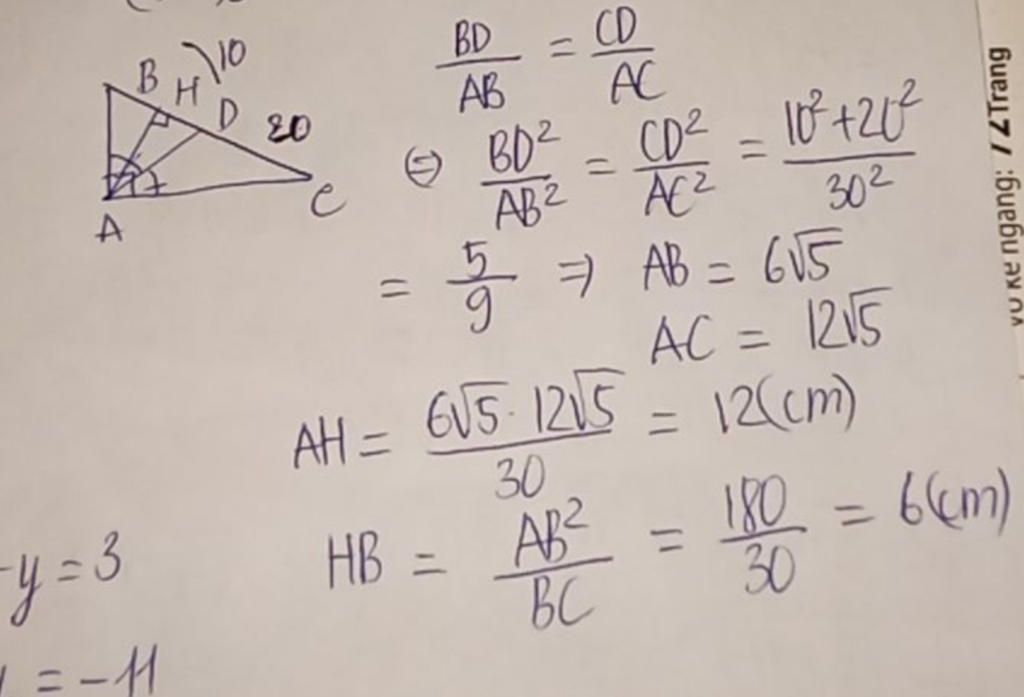 B H D 10 20
A C
BD/AB = CD/AC
⇔ BD²/AB² = CD²/AC² = 10²+20²/30²
= 5/9 ⇒ AB = 6√5
AC = 12√5
AH = 6√5 · 12√5/30 = 12(cm)
HB = AB²/BC = 180/30 = 6(cm)
-y = 3
= -11
Trang